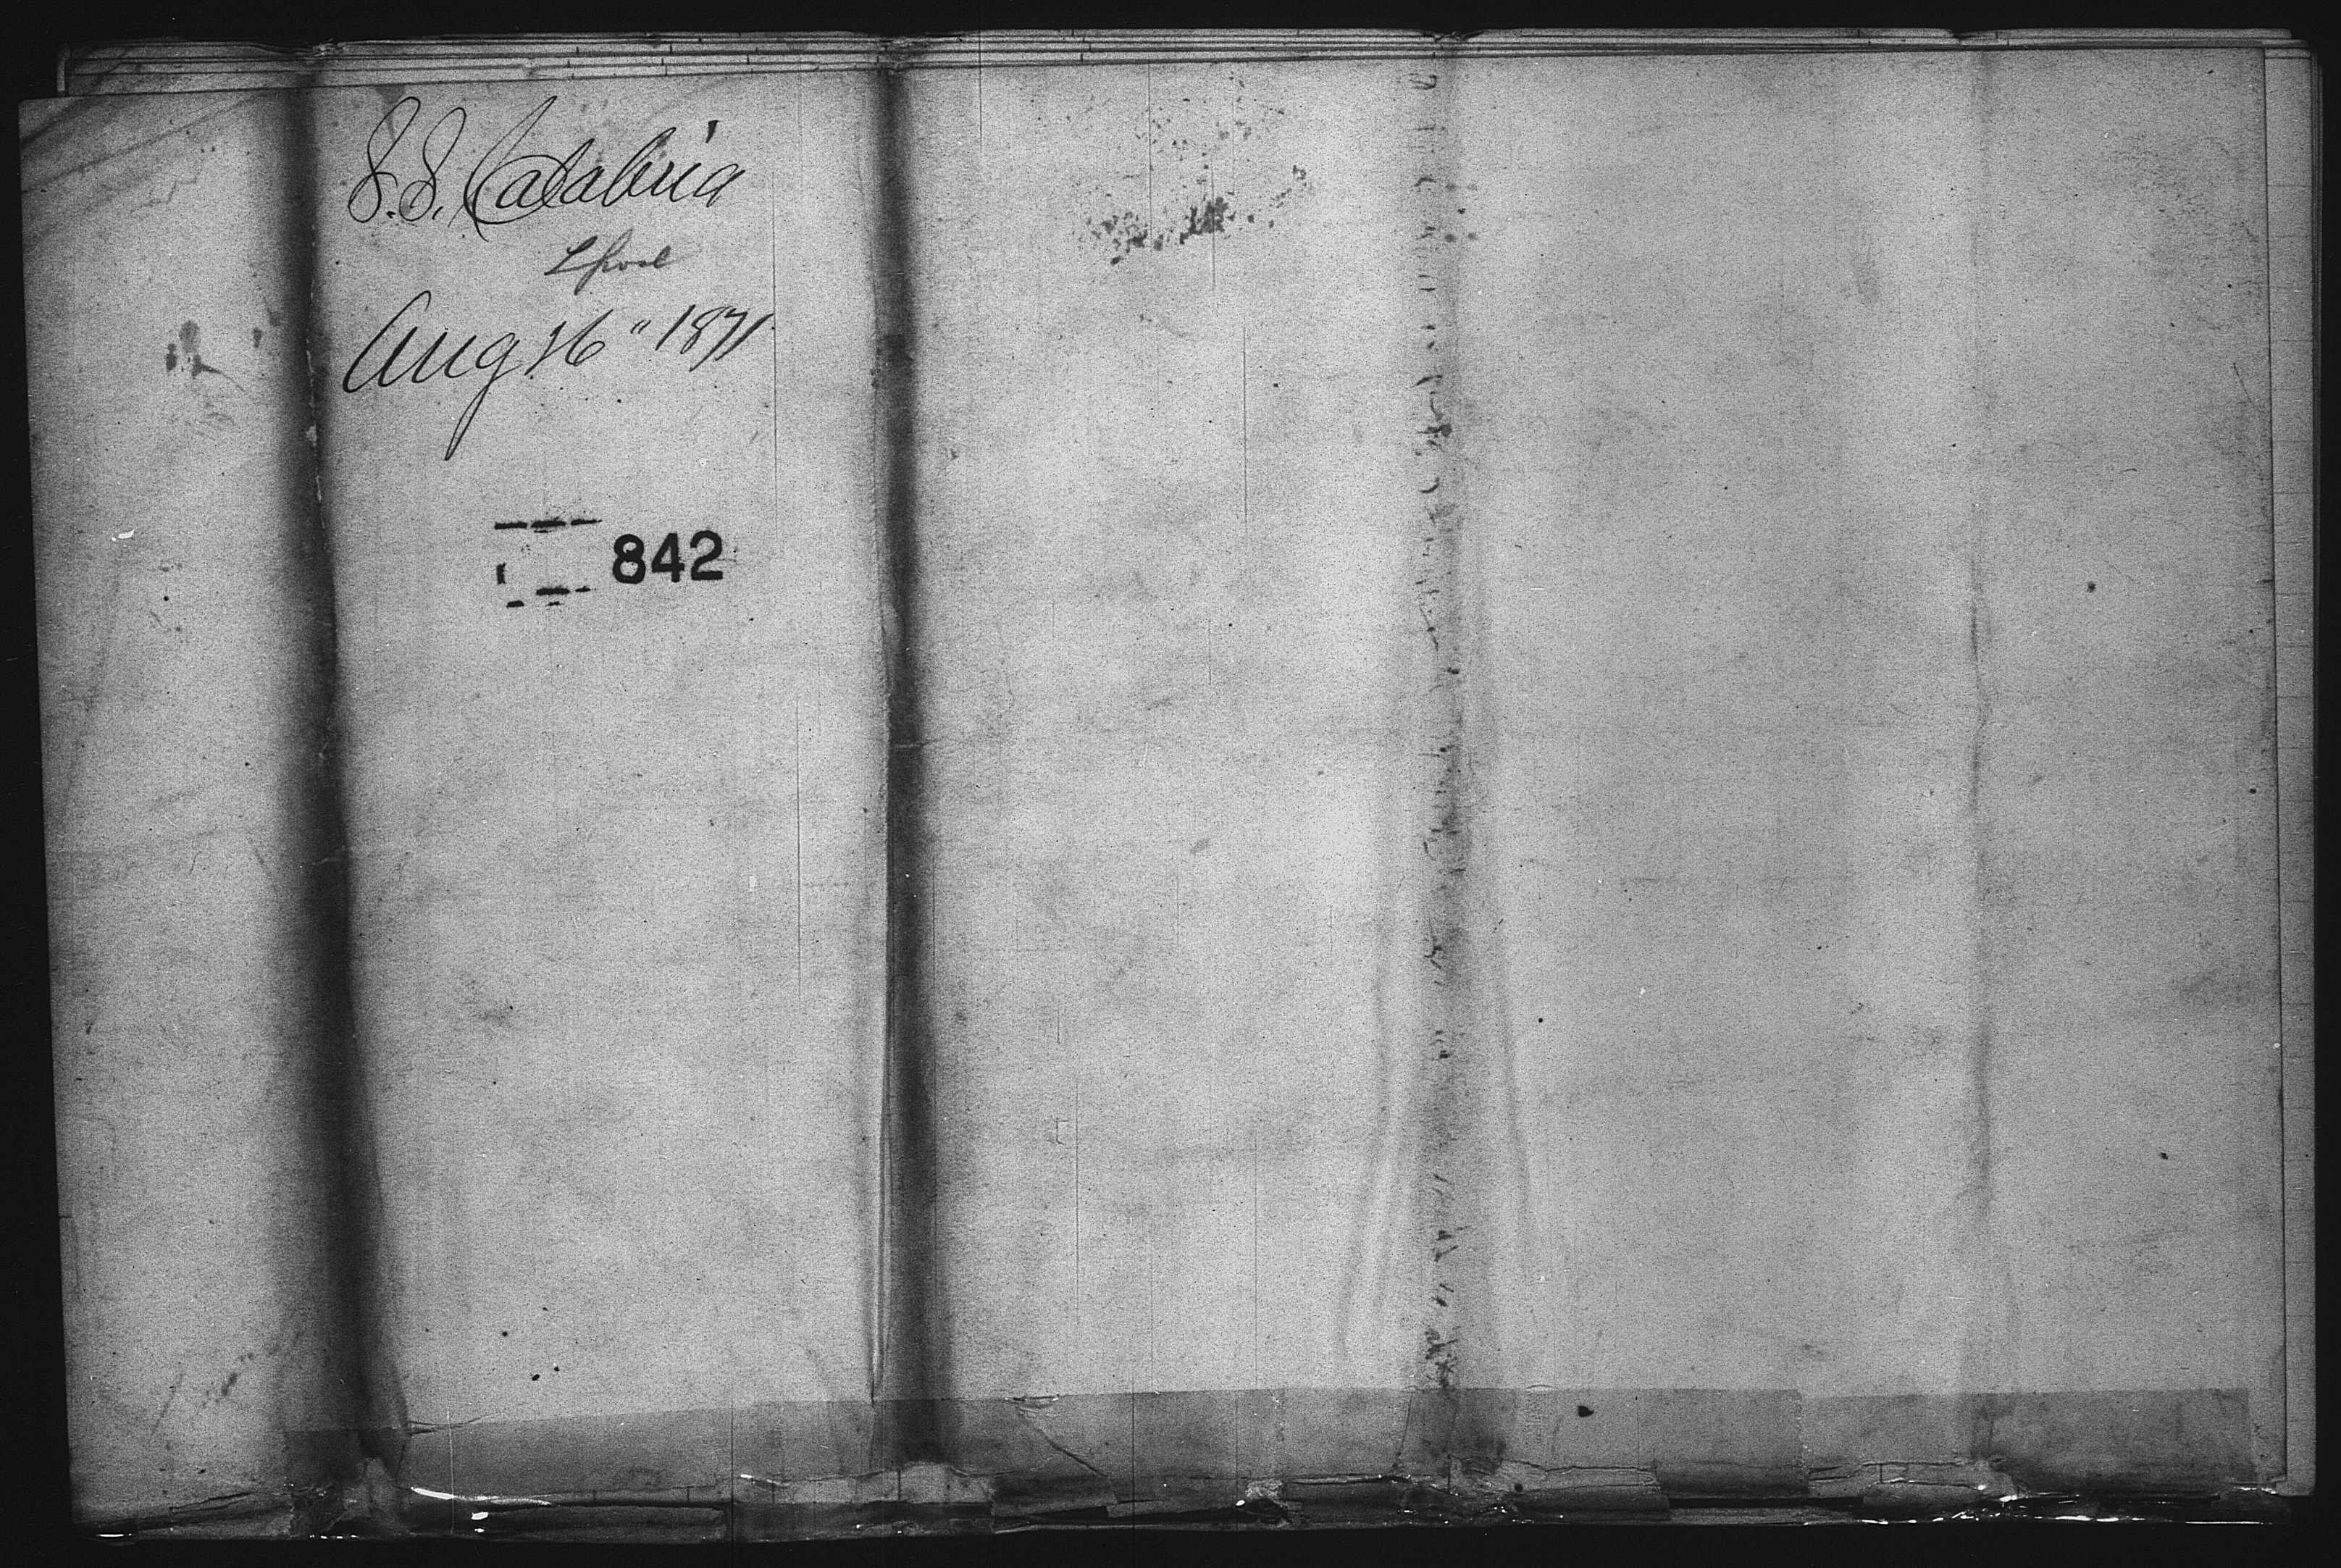 S.S. Calabria
Lpool
Aug 16" 1871
842